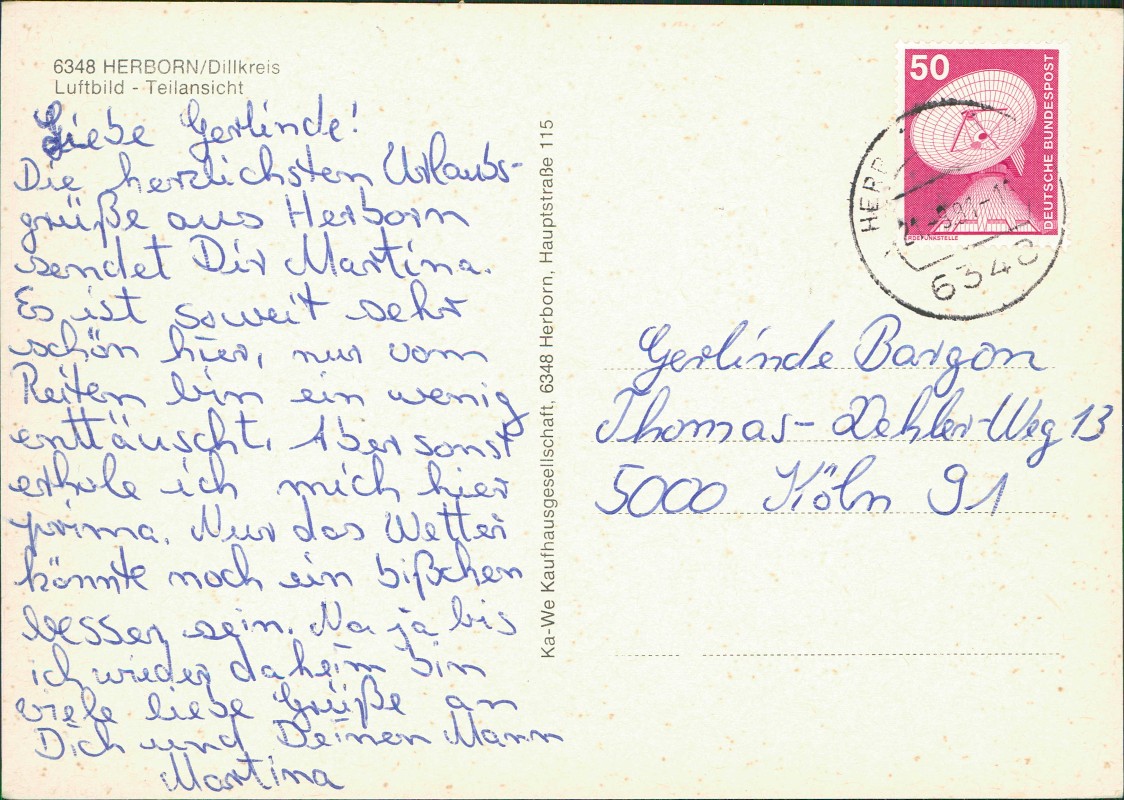 6348 HERBORN/Dillkreis
Luftbild - Teilansicht
Liebe Gerlinde!
Die herzlichsten Urlaubs-
grüße aus Herborn
sendet Dir Martina.
Es ist soweit sehr
schön hier, nur vom
Reiten bin ein wenig
enttäuscht. Aber sonst
erhole ich mich hier
prima. Nur das Wetter
könnte noch ein bißchen
besser sein. Na ja bis
ich wieder daheim bin
viele liebe Grüße an
Dich und Deinen Mann
Martina
Ka-We Kaufhausgesellschaft, 6348 Herborn, Hauptstraße 115
50
DEUTSCHE BUNDESPOST
ERDEFUNKSTELLE
HERB
6348
Gerlinde Bargon
Thomas-Dehler-Weg 13
5000 Köln 91